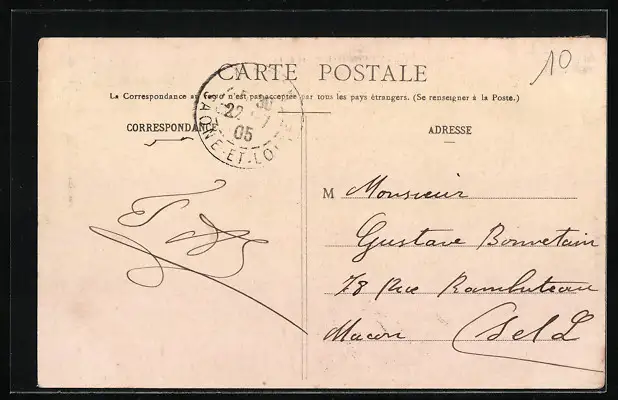 10
CARTE POSTALE
La Correspondance au recto n'est pas acceptée par tous les pays étrangers. (Se renseigner à la Poste.)
CORRESPONDANCE
ADRESSE
30
22
05
SAONE-ET-LOIRE
M Monsieur
Gustave Bonnetain
78 Rue Rambuteau
Macon S et L